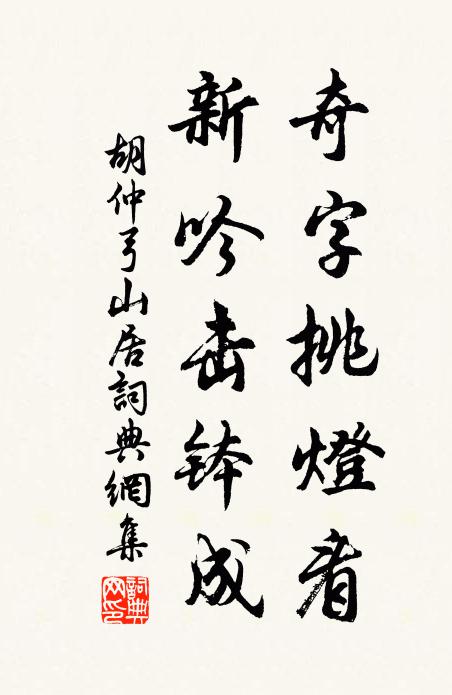 奇字挑燈看
新吟击鉢成
胡仲弓山居詞典網集
詞典網印